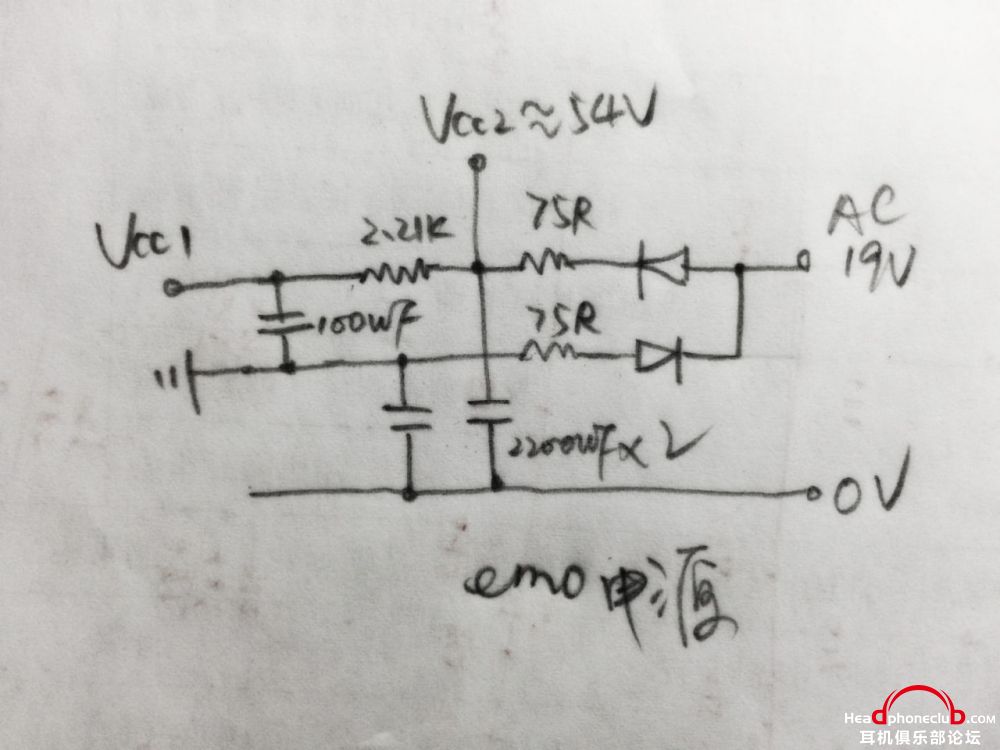 Vcc2≈54V
Vcc1
2.21K
75R
AC
19V
100uF
75R
2200uF×2
0V
emo电源
Headphoneclub.com
耳机俱乐部论坛